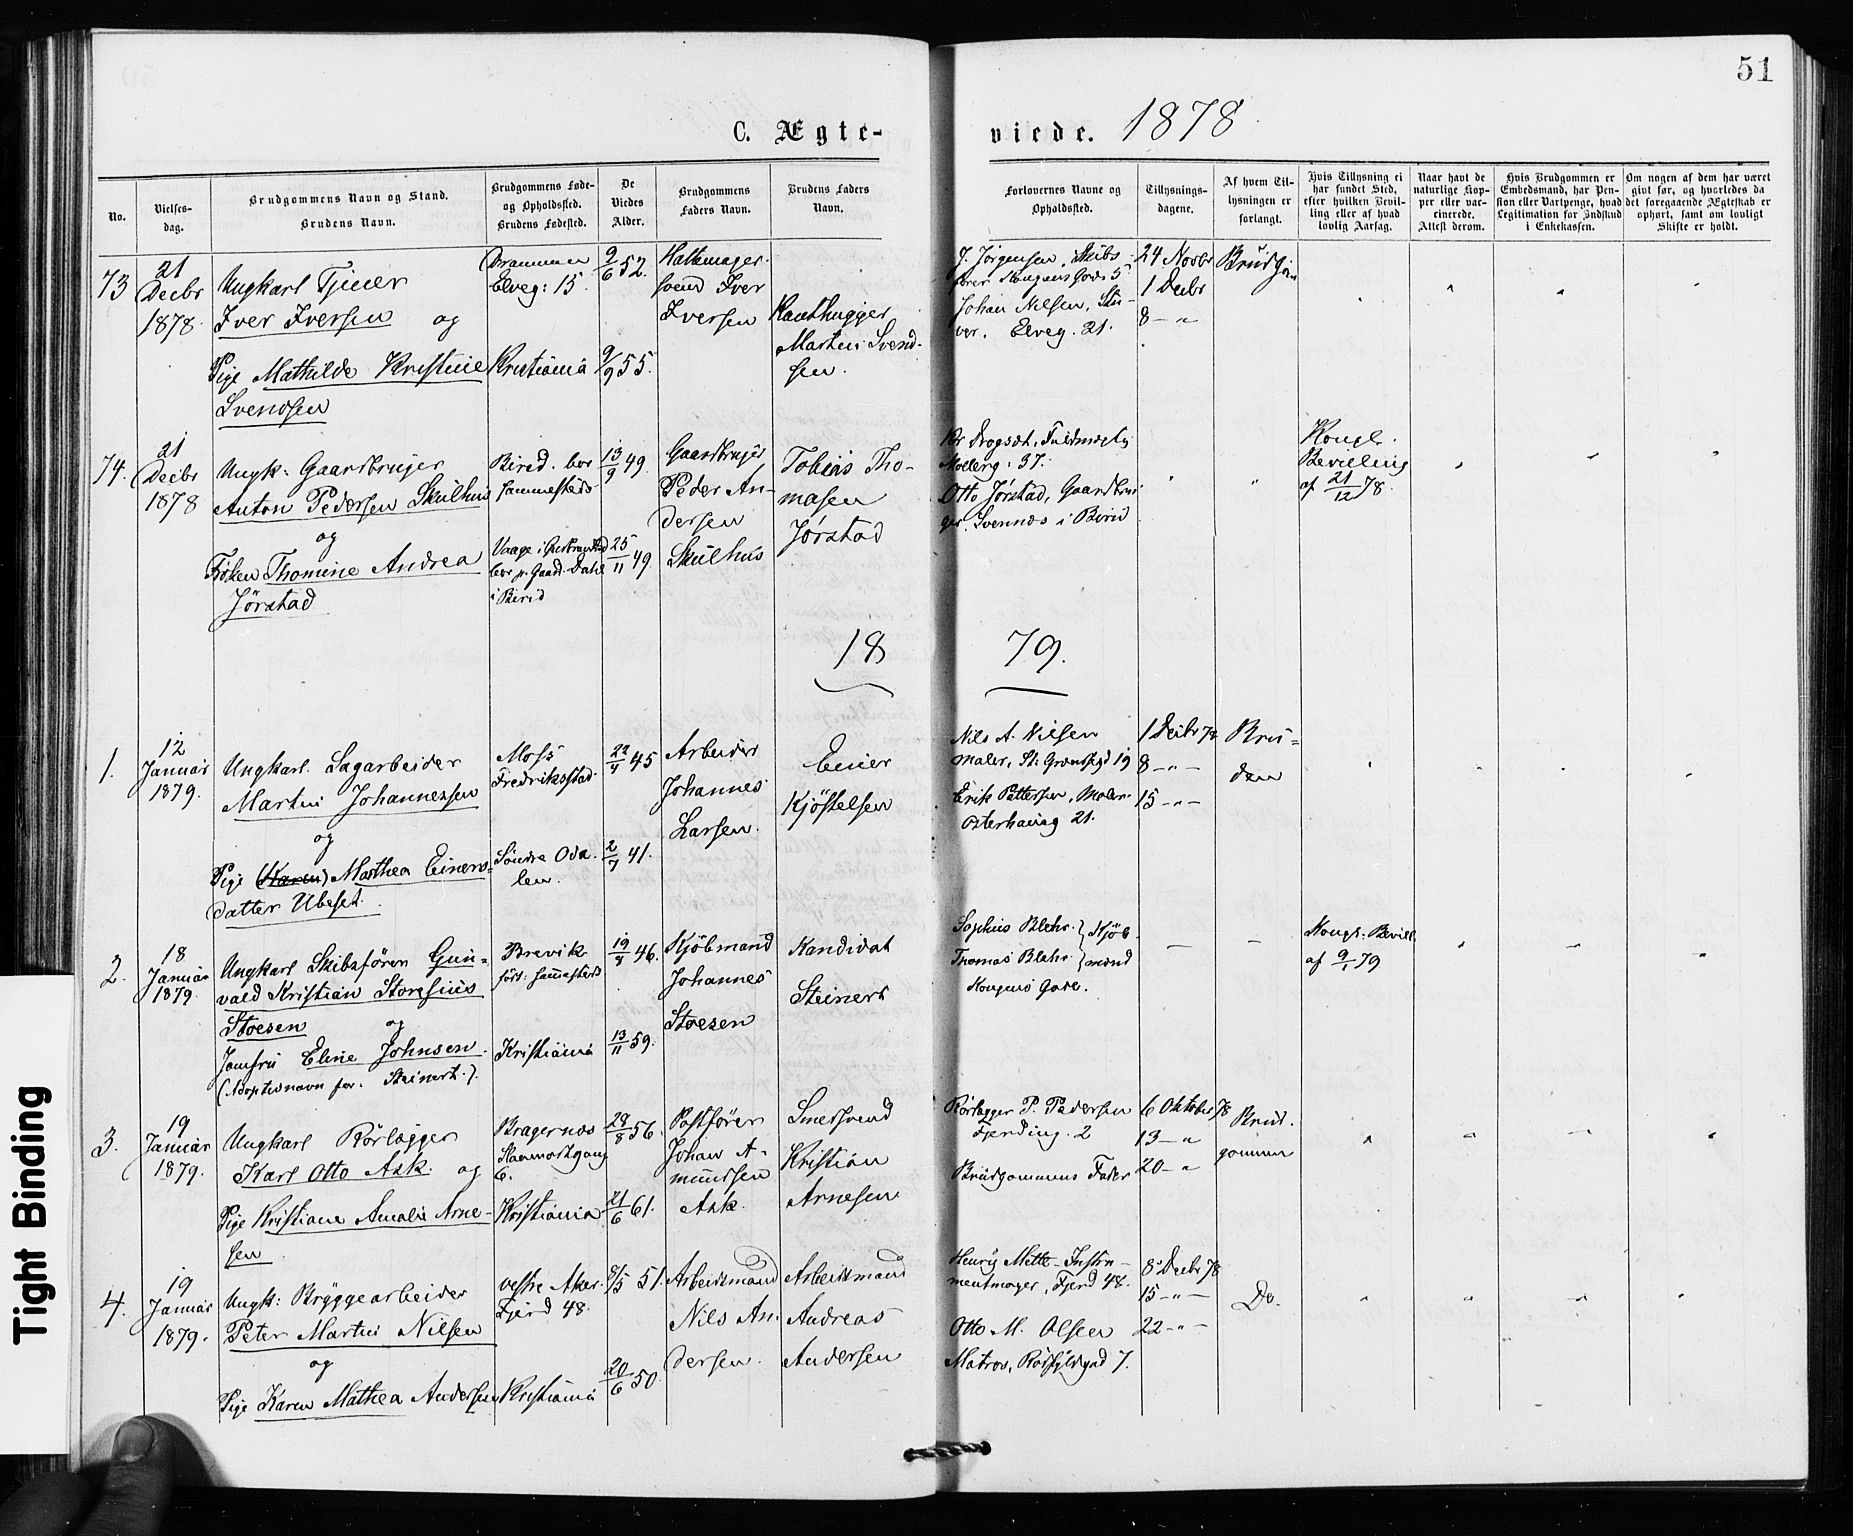 51
C. Ægte-
viede. 1878
No.
Vielses-
dag.
Brudgommens Navn og Stand.
Brudens Navn.
Brudgommens Føde-
og Opholdssted.
Brudens Fødested.
De
Viedes
Alder.
Brudgommens
Faders Navn.
Brudens Faders
Navn.
Forlovernes Navne og
Opholdssted.
Tillysnings-
dagene.
Af hvem Til-
lysningen er
forlangt.
Hvis Tillysning ei
har fundet Sted,
efter hvilken Bevil-
ling eller af hvad
lovlig Aarsag.
Naar havt de
naturlige Kop-
per eller vac-
cinerede.
Attest derom.
Hvis Brudgommen er
Embedsmand, har Pen-
sion eller Vartpenge, hvad
Legitimation for Indskud
i Enkekassen.
Om nogen af dem har været
givt før, og hvorledes da
det foregaaende Ægteskab er
ophørt, samt om lovligt
Skifte er holdt.
73
21
Decbr
1878.
Ungkarl Tjener
Iver Iversen og
Pige Mathilde Kristine
Svendsen
Drammen
Elveg: 15.
Kristiania
9/6 52.
9/9 55.
Hattemager-
svend Iver
Iversen
Kanthugger
Martin Svend-
sen.
J. Jørgensen, Skibs-
fører
Johan Nilsen, Stu-
ver. Elveg. 21.
24 Novbr
1 Decbr
8 – "
Brudgom
74.
21
Decbr
1878
Ungk: Gaardbruger
Anton Pedersen Skulhus
og
Frøken Thomine Andrea
Jørstad
Birid. bor
sammesteds
Vaage i Gudbrandsd
bor p. Gaard. Dahl
i Birid
13/9 49.
25/11 49.
Gaardbruger
Peder An-
dersen
Skulhus
Tobias Tho-
masen
Jørstad
Kr Drogset, Fuldmægtig
Møllerg: 37.
Otto Jørstad, Gaardbru-
ger. Svennes i Birid
Kongl.
Bevilling
af 21/12 78.
18 79.
1.
12
Januar
1879.
Ungkarl. Sagarbeider
Martin Johannessen
og
Pige (Karen) Marthea Einers-
datter Ubeset.
Moss
Fredriksstad.
Søndre Oda-
len.
22/4 45
2/7 41.
Arbeider
Johannes
Larsen.
Einer
Kjøstelsen
Nils A. Nilsen
Maler, St: Grændsegd 19
Erik Pettersen, Maler.
Osterhausg 21.
1 Decbr 78
8 – " –
15 – " –
Bru-
den
2.
18
Januar
1879.
Ungkarl Skibsfører Gun-
vald Kristian Storesius
Stoesen
og
Jomfru Eline Johnsen.
(Adoptionavn for. Steinert.).
Brevik
født: sammesteds
Kristiania
19/8 46.
13/11 59.
Kjøbmand
Johannes
Stoesen
Kandidat
Steinert
Sophus Blehr. } Kjøb-
Thomas Blehr. } mænd
Kongens Gade.
Kongl. Bevill
af 9/1 79
3.
19
Januar
1879.
Ungkarl Rørlægger
Karl Otto Ask. og
Pige Kristiane Amalie Arne-
sen
Bragernes
Hammersborgsg
6.
Kristiania
29/8 56.
21/6 61.
Postfører
Johan A-
mundsen
Ask.
Smedsvend
Kristian
Arnesen
Rørlægger P. Pedersen
Fjerding. 2
Brudgommens Fader
6 Oktober 78
13 – "
20 – "
Brud-
gommen
4.
19
Januar
1879.
Ungk: Bryggearbeider
Peter Martin Nilsen
og
Pige Karen Mathea Andersen
vestre Aker
Fjerd 48.
Kristiania
8/5 51.
20/6 50.
Arbeidsmand
Nils An-
dersen.
Arbeidsmand
Andreas
Andersen
Henry Mette – Instru-
mentmager, Fjerd 48.
Otto M. Olsen
Matros, Rødfyldgad 7.
8 Decbr 78
15 – " –
22 – " –
Do.
Tight Binding